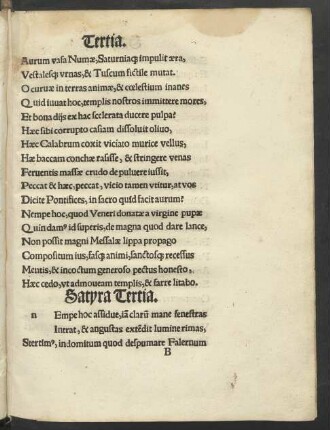 Tertia.
Aurum vasa Numæ, Saturniaq; impulit æra,
Vestalesq; vrnas, & Tuscum fictile mutat.
O curuæ in terras animæ, & cœlestium inanes
Quid iuuat hoc, templis nostros immittere mores,
Et bona dijs ex hac scelerata ducere pulpa?
Hæc sibi corrupto casiam dissoluit oliuo,
Hæc Calabrum coxit viciato murice vellus,
Hæ baccam conchæ rasisse, & stringere venas
Feruentis massæ crudo de puluere iussit,
Peccat & hæc, peccat, vicio tamen vtitur, at vos
Dicite Pontifices, in sacro quid facit aurum?
Nempe hoc, quod Veneri donatæ a virgine pupæ
Quin damꝰ id superis, de magna quod dare lance,
Non possit magni Messalæ lippa propago
Compositum ius, fasq; animi, sanctosq; recessus
Mentis, & incoctum generoso pectus honesto,
Hæc cedo, vt admoueam templis, & farre litabo.
Satyra Tertia.
n Empe hoc assidue, iā clarū mane fenestras
Intrat, & angustas extēdit lumine rimas,
Stertimꝰ, indomitum quod despumare Falernum
B